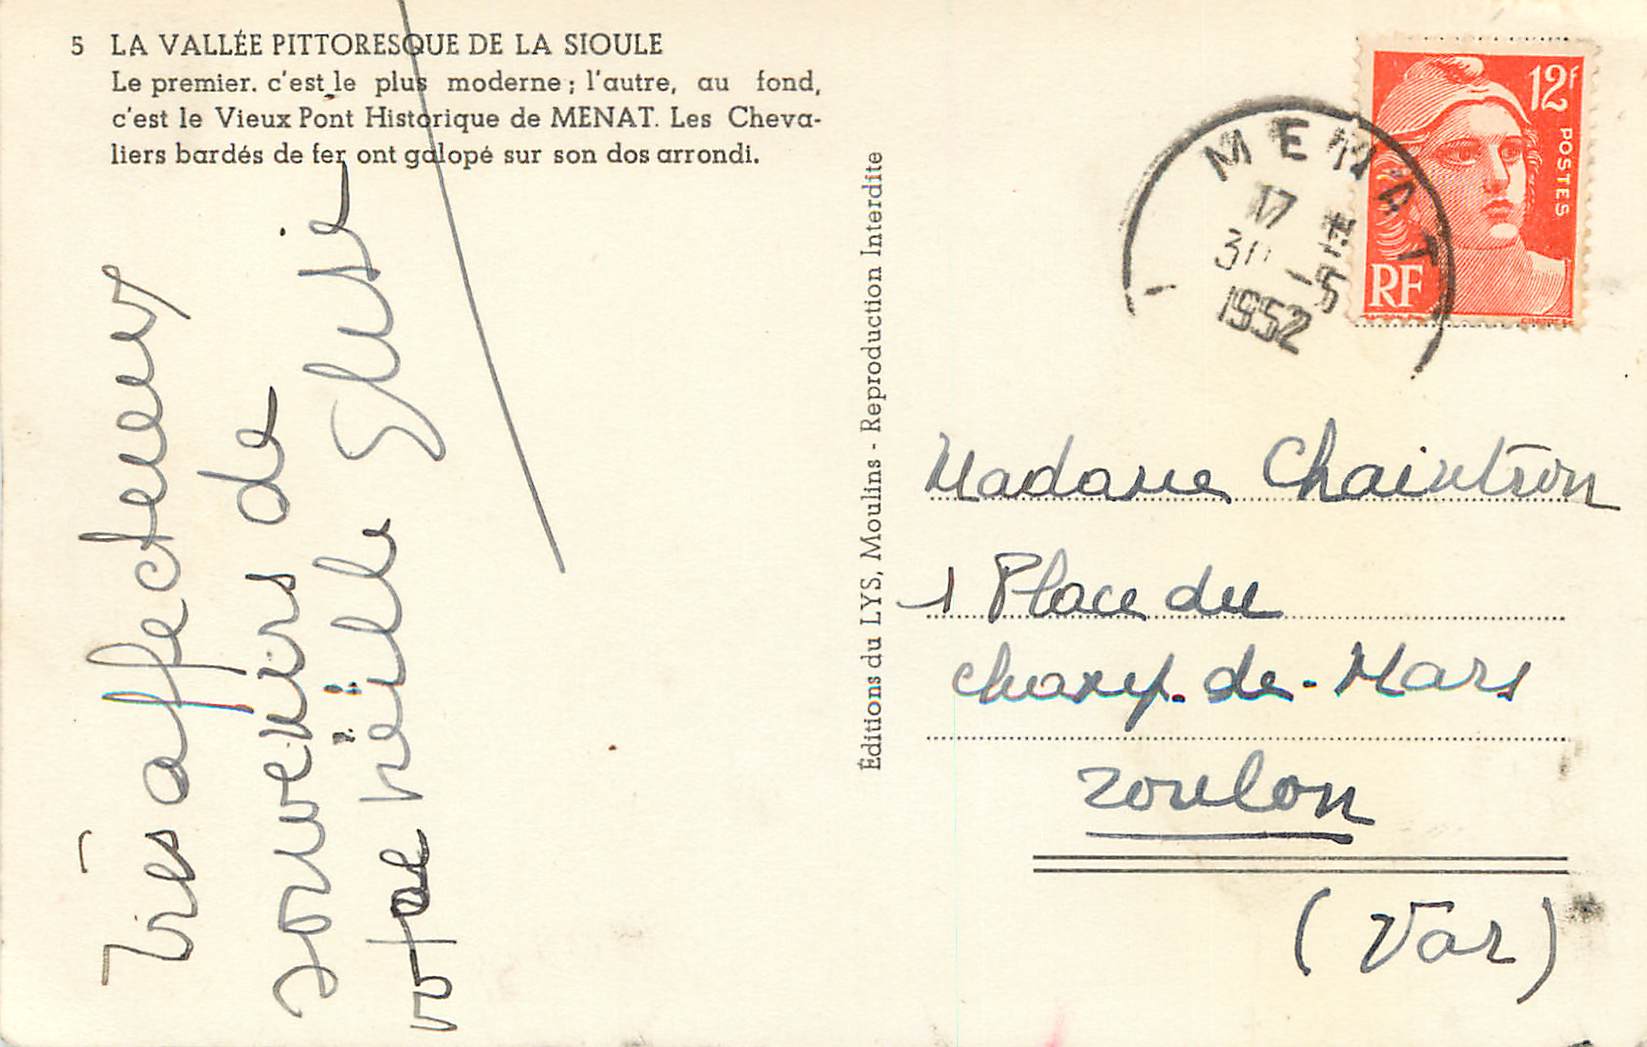 5 LA VALLÉE PITTORESQUE DE LA SIOULE
Le premier. c'est le plus moderne ; l'autre, au fond,
c'est le Vieux Pont Historique de MENAT. Les Cheva-
liers bardés de fer ont galopé sur son dos arrondi.
Très affectueux
souvenirs de
votre vieille
Éditions du LYS, Moulins - Reproduction Interdite
MENAT
17 H
30 -5
1952
12f
POSTES
RF
Madame Chaintron
1 Place du
champ-de-Mars
Toulon
(Var)